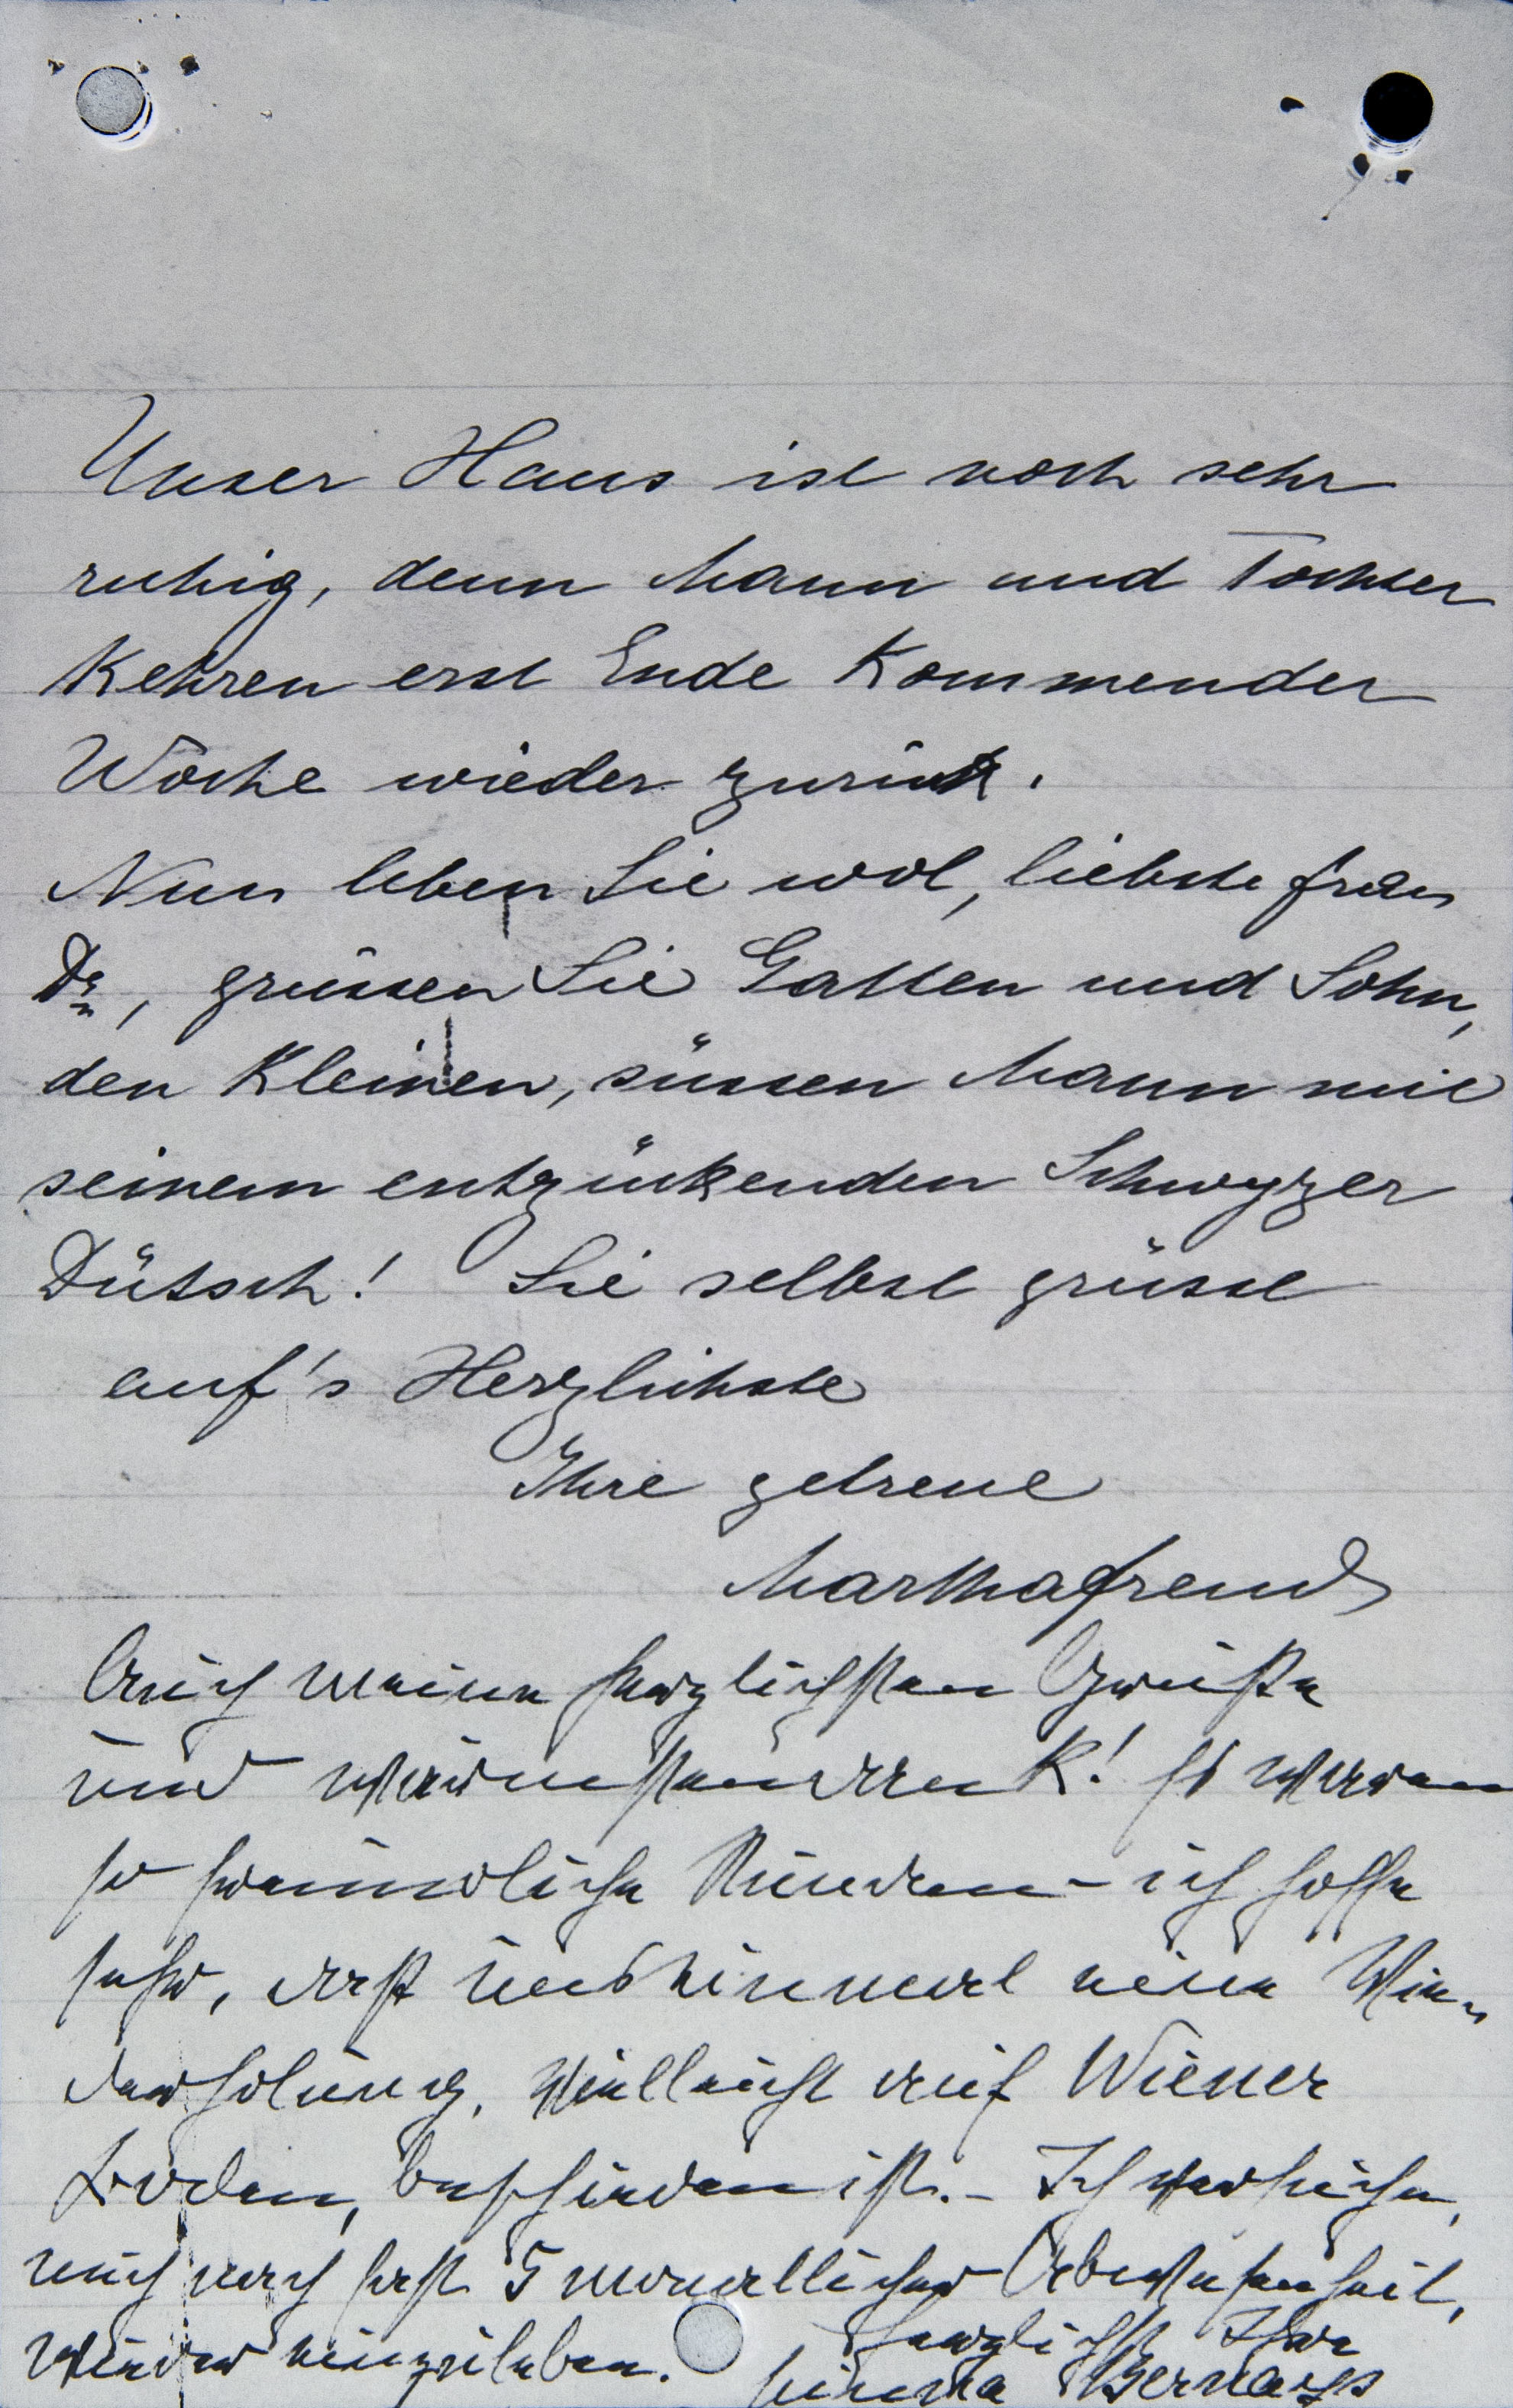 Unser Haus ist noch sehr
ruhig, denn Mann und Tochter
kehren erst Ende kommender
Woche wieder zurück.
Nun leben Sie wol, liebste Frau
Dr, grüssen Sie Gatten und Sohn,
den Kleinen, süssen Mann mit
seinem entzückenden Schwyzer
Dütsch! Sie selbst grüsst
auf's Herzlichste
Ihre getreue
Martha Freud
Auch meine herzlichsten Grüße
und Händedruck! Es waren
so freundliche Stunden - ich hoffe
sehr, daß uns einmal eine Wie-
derholung, vielleicht auf Wiener
Boden, beschieden ist. - Ich versuche,
mich nach fast 5 monatlicher Abwesenheit,
wieder einzuleben. Herzlichst Ihre
Minna Bernays